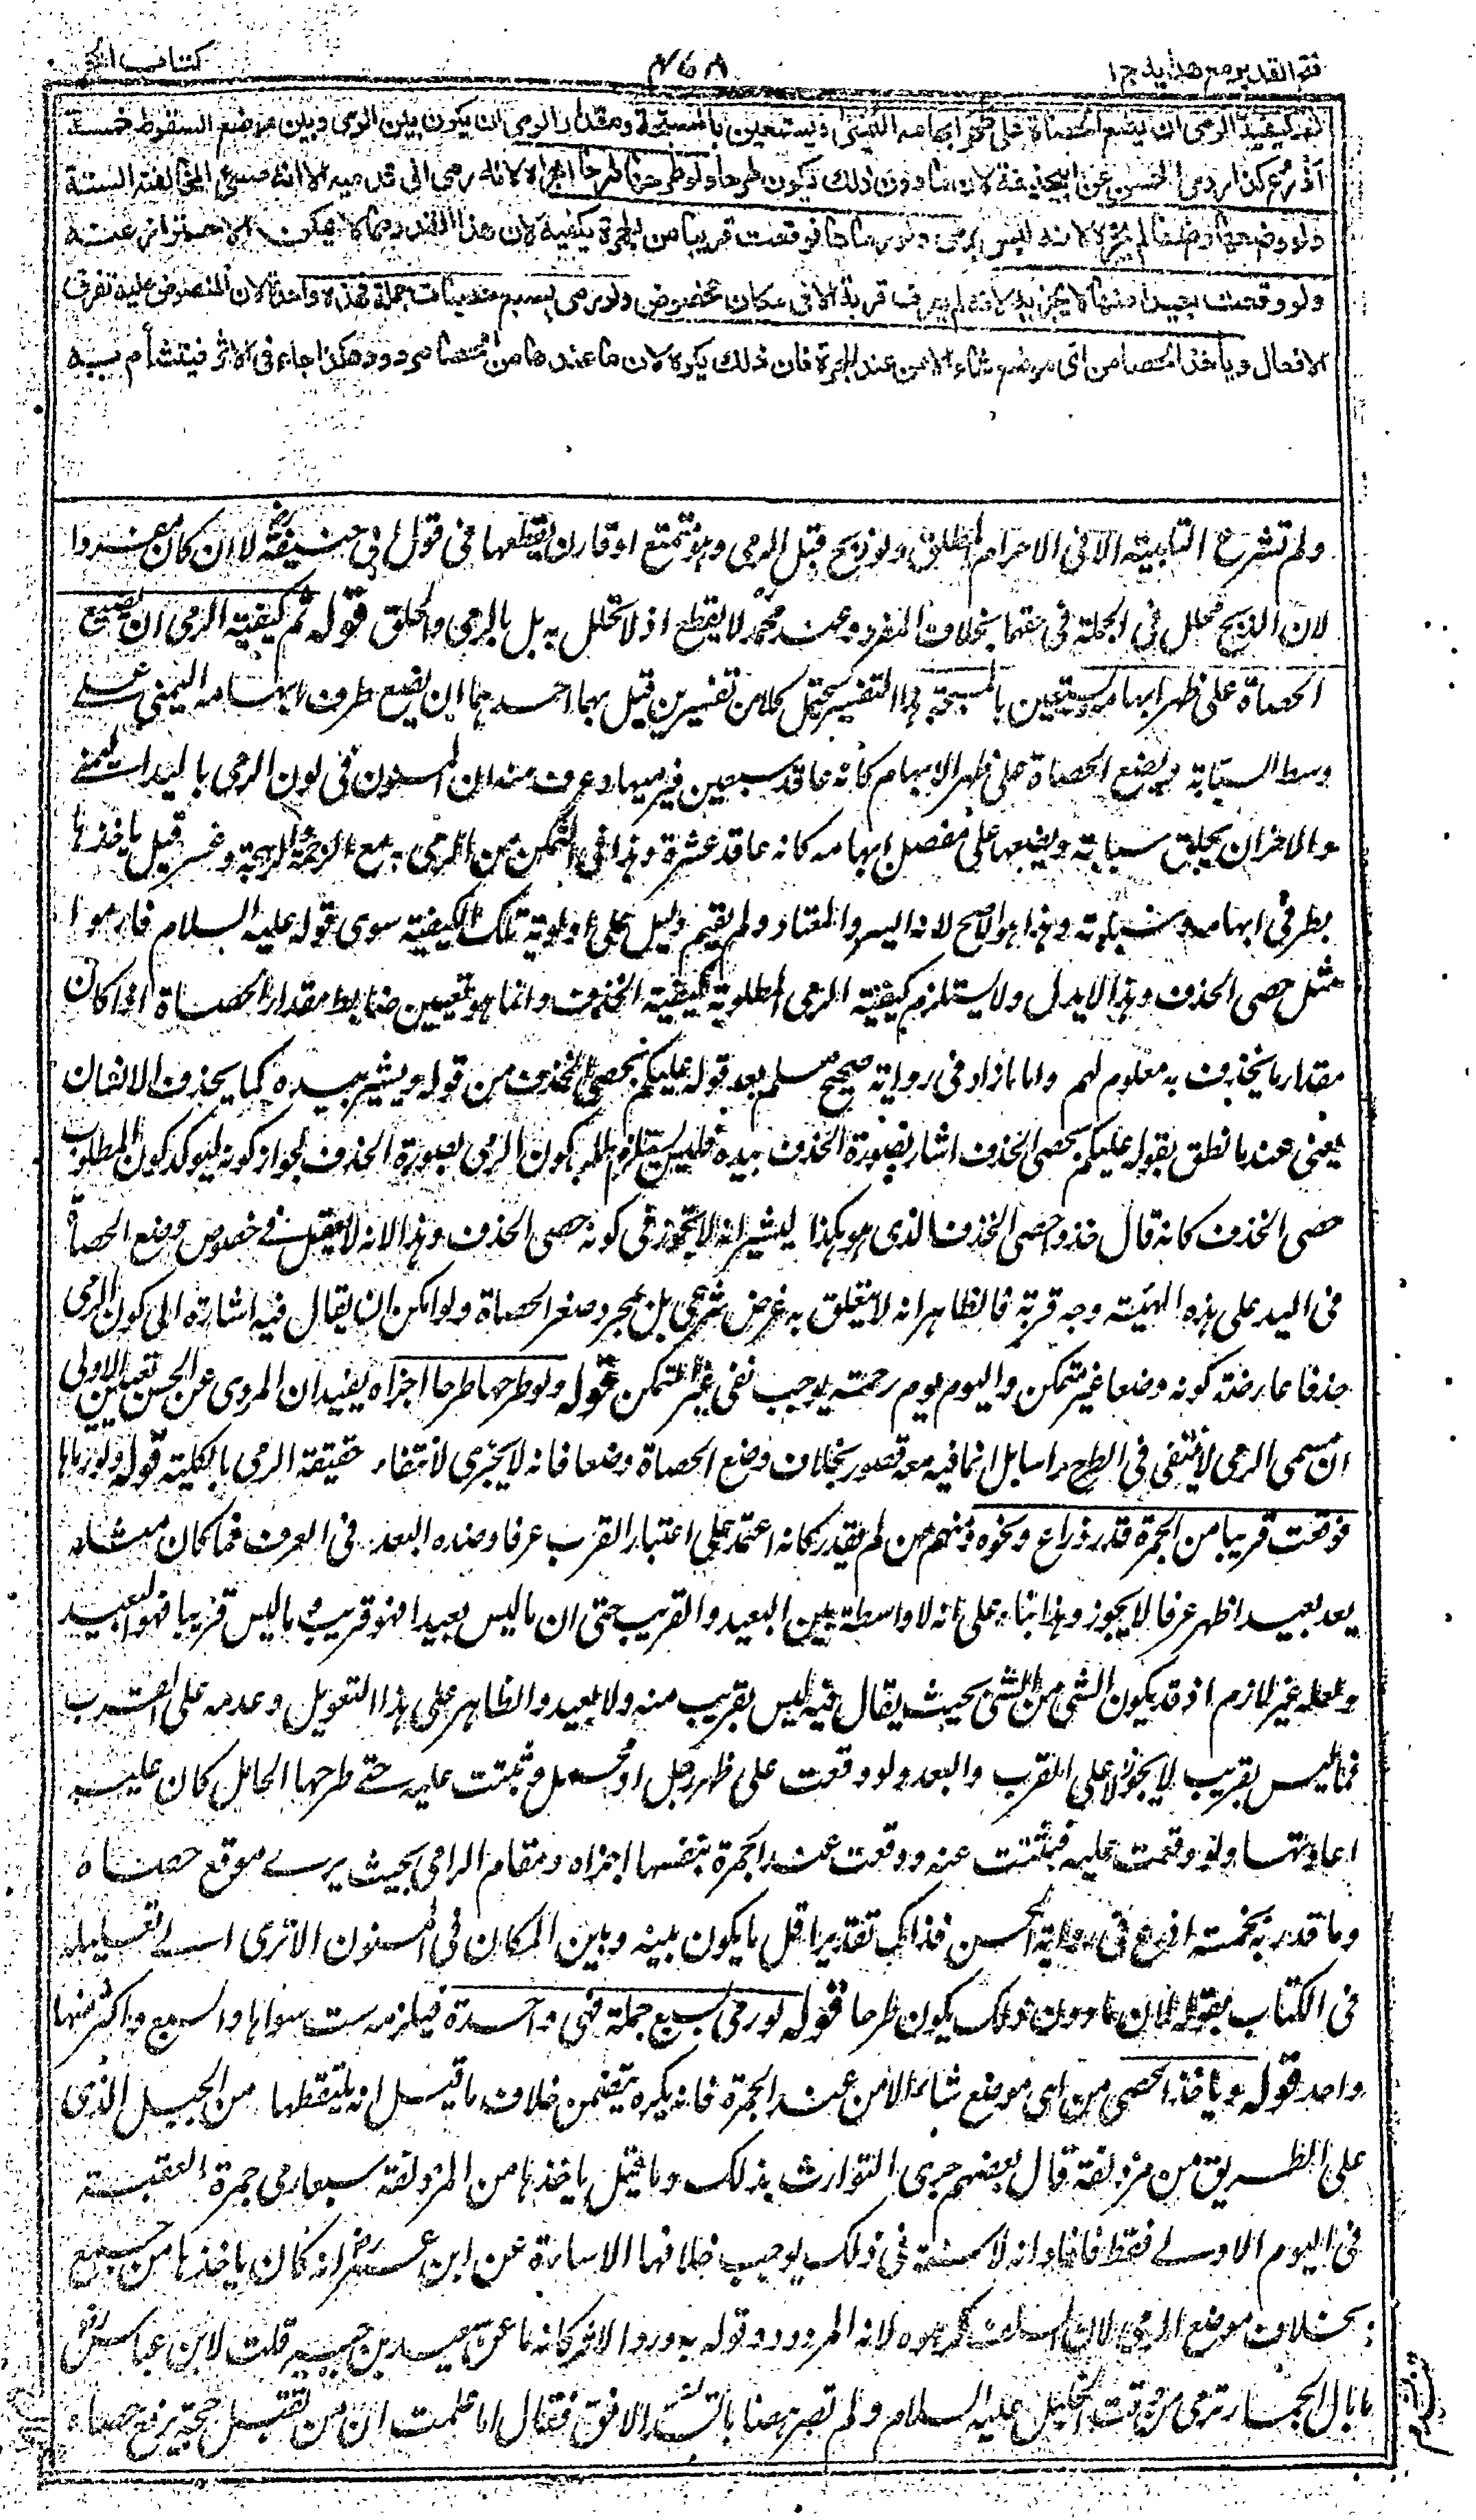 فتح القدير مع هدايه ج ١
٤٦٨
كتاب الحج
ثم كيفية الرمي ان يضع الحصاة على ظهر ابهامه اليمنى ويستعين بالمسبحة ومقدار الرمي ان يكون بين الرمي وبين موضع السقوط خمسة
اذرع كذا روى الحسن عن ابي حنيفة لان ما دون ذلك يكون طرحا ولو طرحها طرحا اجزاه لانه رمى الى قدميه الا انه مسيئ لمخالفته السنة
ولو وضعها وضعا لم يجزه لانه ليس برمي ولو رماها فوقعت قريبا من الجمرة يكفيه لان هذا القدر مما لا يمكن الاحتراز عنه
ولو وقعت بعيدا منها لا يجزيه لانه لم يعرف قربة الا في مكان مخصوص ولو رمى بسبع حصيات جملة فهذه واحدة لان المنصوص عليه تفرق
الافعال وياخذ الحصا من اي موضع شاء الا من عند الجمرة فان ذلك يكره لان ما عندها من الحصا مردود هكذا جاء في الاثر فيتشأم به
ولم تشرع التلبية الا في الاحرام المطلق ولو ذبح قبل الرمي وهو متمتع او قارن يقطعها في قول ابي حنيفة لا ان كان مفردا
لان الذبح محلل في الجملة في حقهما بخلاف المفرد وعند محمد لا يقطع اذ لا تحلل به بل بالرمي والحلق قوله ثم كيفية الرمي ان يضع
الحصاة على ظهر ابهامه ويستعين بالمسبحة هذا التفسير يحتمل كلا من تفسيرين قيل بهما احدهما ان يضع طرف ابهامه اليمنى على
وسط السبابة ويضع الحصاة على ظهر الابهام كانه عاقد سبعين فيرميها وعرف منه ان المسنون في كون الرمي باليد اليمنى
والاخر ان يحلق سبابته ويضعها على مفصل ابهامه كانه عاقد عشرة وهذا في التمكن من الرمي به مع الزحمة الوهجة عسر وقيل ياخذها
بطرفي ابهامه وسبابته وهذا هو الاصح لانه ايسر والمعتاد ولم يقم دليل على اولوية تلك الكيفية سوى قوله عليه السلام فارموا
مثل حصى الخذف وهذا لا يدل ولا يستلزم كيفية الرمي المطلوبة كيفية الخذف وانما هو تعيين ضابط مقدار الحصاة اذا كان
مقدار ما يخذف به معلوم لهم واما ما زاد في رواية صحيح مسلم بعد قوله عليكم بحصى الخذف من قوله ويشير بيده كما يخذف الانسان
يعني عندما نطق بقوله عليكم بحصى الخذف اشار بصورة الخذف بيده فليس يستلزم طلب كون الرمي بصورة الخذف لجواز كونه ليوكد كون المطلوب
حصى الخذف كانه قال خذوا حصى الخذف الذي هو هكذا ليشير انه لا تجوز في كونه حصى الخذف وهذا لانه لا يعقل في خصوص وضع الحصاة
في اليد على هذه الهيئة وجه قربة فالظاهر انه لا يتعلق به غرض شرعي بل بمجرد صغر الحصاة ولو امكن ان يقال فيه اشارة الى كون الرمي
خذفا عارضه كونه وضعا غير متمكن واليوم يوم زحمة يوجب نفي غير المتمكن قوله ولو طرحها طرحا اجزاه يفيد ان المروي عن الحسن تعيين الاولى
ان مسمى الرمي لا ينتفي في الطرح راسا بل انما فيه معه قصور بخلاف وضع الحصاة وضعا فانه لا يجزى لانتفاء حقيقة الرمي بالكلية قوله ولو رماها
فوقعت قريبا من الجمرة قدر ذراع ونحوه ومنهم من لم يقدر كانه اعتمد على اعتبار القرب عرفا وضده البعد في العرف فما كان مثله
يعد بعيدا ظهر عرفا لا يجوز وهذا بناء على انه لا واسطة بين البعيد والقريب حتى ان ما ليس بعيدا فهو قريب وما ليس قريبا فهو البعيد
ولعله غير لازم اذ قد يكون الشئ من الشئ بحيث يقال فيه ليس بقريب منه ولا بعيد والظاهر على هذا التعويل وعدمه على القرب
فما ليس بقريب لا يجوز لا على القرب والبعد ولو وقعت على ظهر رجل او محمل وثبتت عليه حتى طرحها الحامل كان عليه
اعادتها ولو وقعت عليه فنبت عنه ووقعت عند الجمرة بنفسها اجزاه ومقام الرامي بحيث يرى موقع حصاه
وما قدر به بخمسة اذرع في رواية الحسن فذاك تقدير اقل ما يكون بينه وبين المكان في المسنون الا ترى الى تعليله
في الكتاب بقوله لان ما دون ذلك يكون طرحا قوله لو رمى بسبع جملة فهي واحدة فيلزمه ست سواها والسبع واكثر منها
واحد قوله وياخذ الحصى من اي موضع شاء الا من عند الجمرة فانه يكره يتضمن خلاف ما قيل انه يلتقطها من الجبل الذي
على الطريق من مزدلفة قال بعضهم جرى التوارث بذلك وما قيل ياخذها من المزدلفة سبعا رمي جمرة العقبة
في اليوم الاول فقط فافاد انه لا سنة في ذلك يوجب خلافها الاساءة عن ابن عمر انه كان ياخذها من جمع
بخلاف موضع الرمي لان السلف كرهوه لانه المردود وقوله به ورد الاثر كانه ما عن سعيد بن جبير قلت لابن عباس
ما بال الجمار ترمى من وقت الخليل عليه السلام ولم تصر هضابا تسد الافق فقال اما علمت ان من تقبل حجه يرفع حصاه